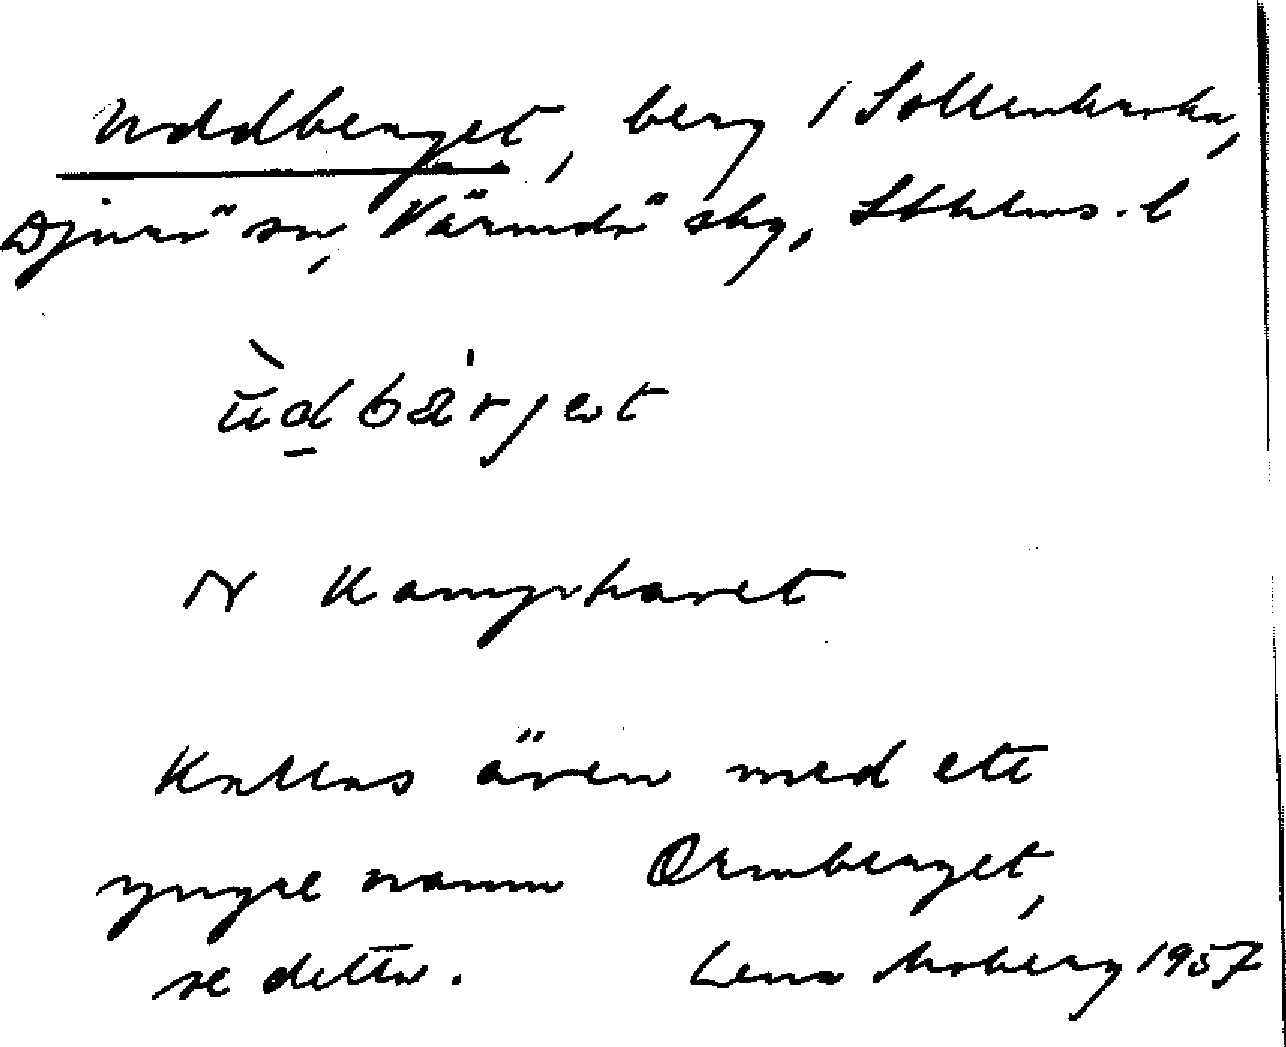 Uddberget, berg i Sollenkroka,
Djurö sn, Värmdö skg, Sthlms. l
ùdbær'jet
N Kampharet
Kallas även med ett
yngre namn Ormberget,
se detta. Lena Moberg 1957